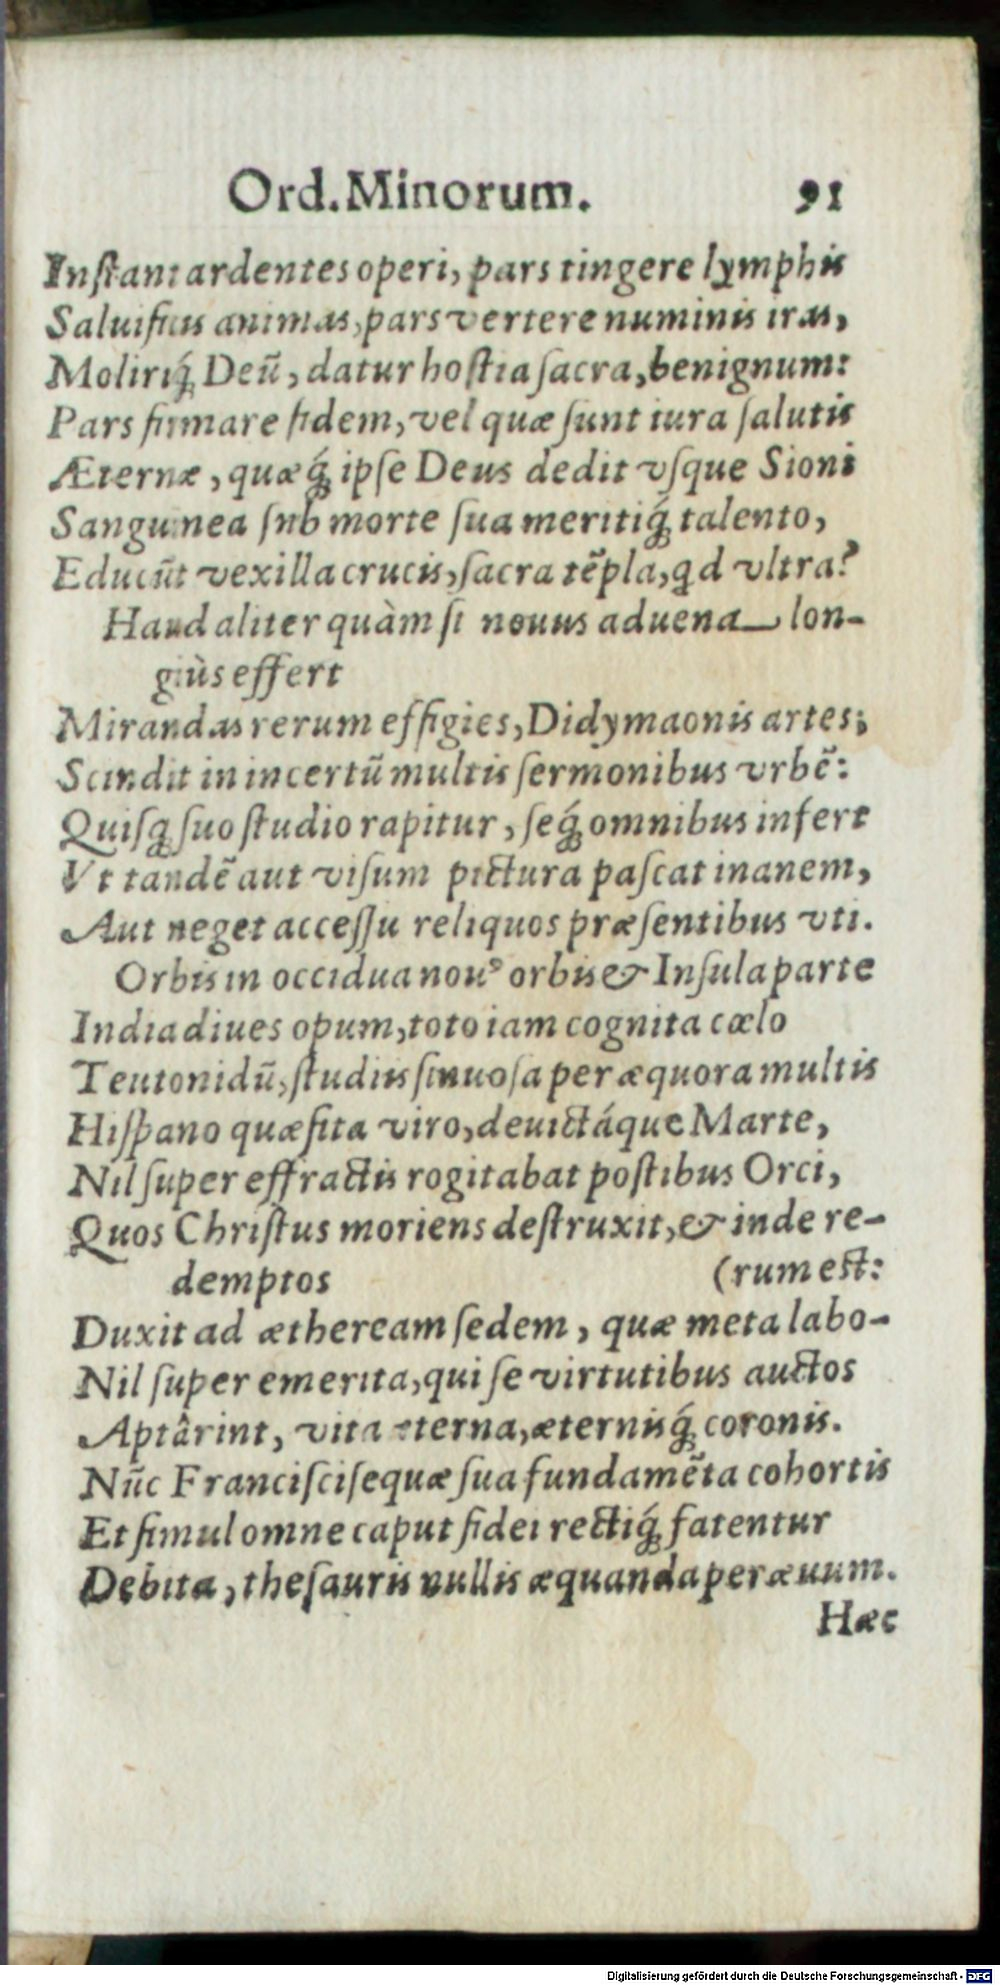 Ord. Minorum. 91
Inſtant ardentes operi, pars tingere lymphis
Saluificis animas, pars vertere numinis iras,
Moliriq́; Deū, datur hoſtia ſacra, benignum:
Pars firmare fidem, vel quæ ſunt iura ſalutis
Æternæ, quæq́; ipſe Deus dedit vſque Sioni
Sanguinea ſub morte ſua meritiq́; talento,
Educūt vexilla crucis, ſacra tēpla, qd vltra?
Haud aliter quàm ſi nouus aduena lon-
giùs effert
Mirandas rerum effigies, Didymaonis artes;
Scindit in incertū multis ſermonibus vrbē:
Quiſq; ſuo ſtudio rapitur, ſeq́; omnibus infert
Vt tandē aut viſum pictura paſcat inanem,
Aut neget acceſſu reliquos præſentibus vti.
Orbis in occidua nouꝰ orbis & Inſula parte
India diues opum, toto iam cognita cœlo
Teutonidū, ſtudiis ſinuoſa per æquora multis
Hiſpano quæſita viro, deuictáque Marte,
Nil ſuper effractis rogitabat poſtibus Orci,
Quos Chriſtus moriens deſtruxit, & inde re-
demptos (rum eſt:
Duxit ad ætheream ſedem, quæ meta labo-
Nil ſuper emerita, qui ſe virtutibus auctos
Aptârint, vita æterna, æternisq́; coronis.
Nūc Franciſci ſequæ ſua fundamēta cohortis
Et ſimul omne caput fidei rectiq́; fatentur
Debita, theſauris nullis æquanda per æuum.
Hæc
Digitalisierung gefördert durch die Deutsche Forschungsgemeinschaft - DFG